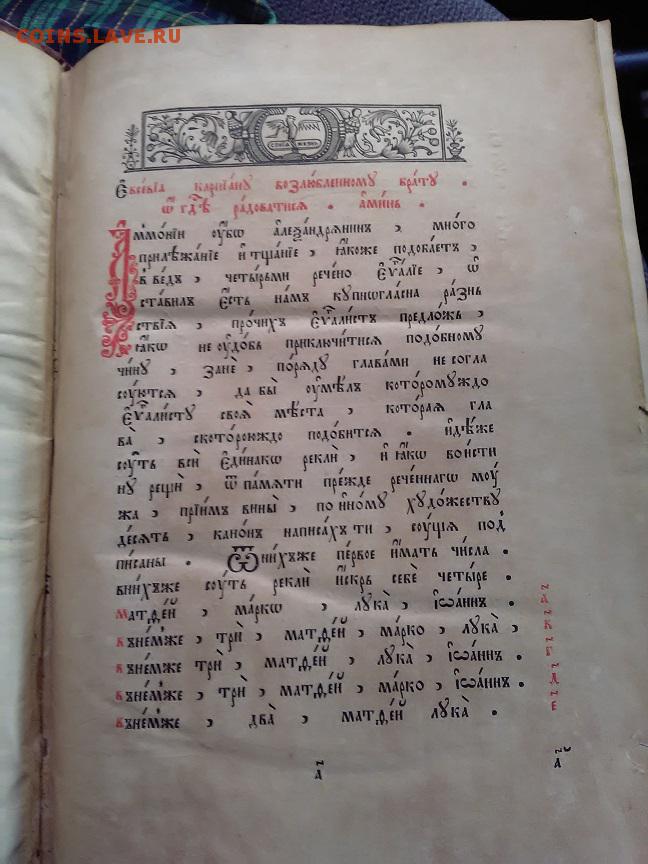 COINS.LAVE.RU
Є҆ѵсе́вїа карпїа́нꙋ возлю́бленномꙋ бра́тꙋ .
ѡ҆ гдⷭ҇ѣ ра́доватисѧ . а҆ми́нь .
А҆ммѡ́нїи ᲂу҆́бѡ а҆леѯа́ндрѧнинъ , мно́го
прилѣжа́нїе и҆ тща́нїе , ꙗ҆́коже подоба́етъ ,
въведъ , четы́рьми рече́но є҆ѵⷢ҇лїе , ѿ
ста́вилъ є҆́сть на́мъ кꙋпногла́сна ра́знь
ствїѧ , про́чихъ є҆ѵⷢ҇ли́стъ предло́жь ,
ꙗ҆́кѡ не ᲂу҆до́бь приключи́тисѧ подо́бномꙋ
чи́нꙋ , занѐ , по́рѧдꙋ глава́ми не согла
сꙋ́ютсѧ , да бы̀ ᲂу҆мѣ́лъ кото́ромꙋждо
є҆ѵⷢ҇ли́стꙋ своѧ̀ мѣ́ста , кото́раѧ гла
ва̀ , ското́роюждо подо́битсѧ . и҆дѣ́же
сꙋ́ть всѝ є҆ди́накѡ реклѝ , и҆ ꙗ҆́кѡ вои́сти
нꙋ рещѝ , ѿ па́мѧти пре́жде рече́ннагѡ мꙋ́
жа , прїи́мъ вины̀ , по и҆́номꙋ хꙋдо́жествꙋ
де́сѧть , кано́нъ написа́хъ ти , сꙋ́щїѧ под̾
пи́саны . Ѿ ни́хъже пе́рвое и҆́мать чи́сла .
вни́хъже сꙋ́ть реклѝ и҆́скрь себѐ четы́ре .
матѳе́й , ма́ркѡ , лꙋка̀ , і҆ѡа́ннъ . а҃
въне́мже , трѝ , матѳе́й , ма́рко , лꙋка̀ , в҃
въне́мже трѝ , матѳе́й , лꙋка̀ , і҆ѡа́ннъ . г҃
въне́мже , трѝ , матѳе́й , ма́рко , і҆ѡа́ннъ . д҃
въне́мже , два̀ , матѳе́й лꙋка̀ . е҃
а҃ а҃